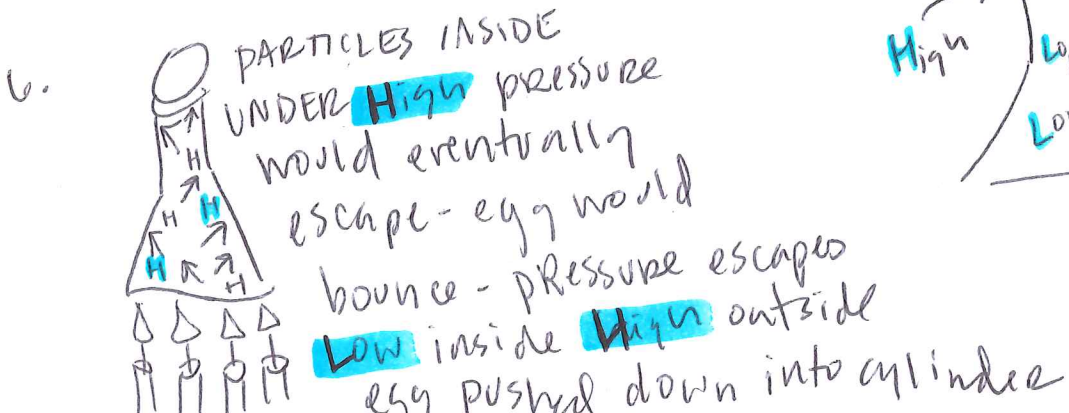 6.
PARTICLES INSIDE
UNDER High pressure
would eventually
escape - egg would
bounce - pressure escapes
Low inside High outside
egg pushed down into cylinder
H
H H
H H
High
Lo
Lo